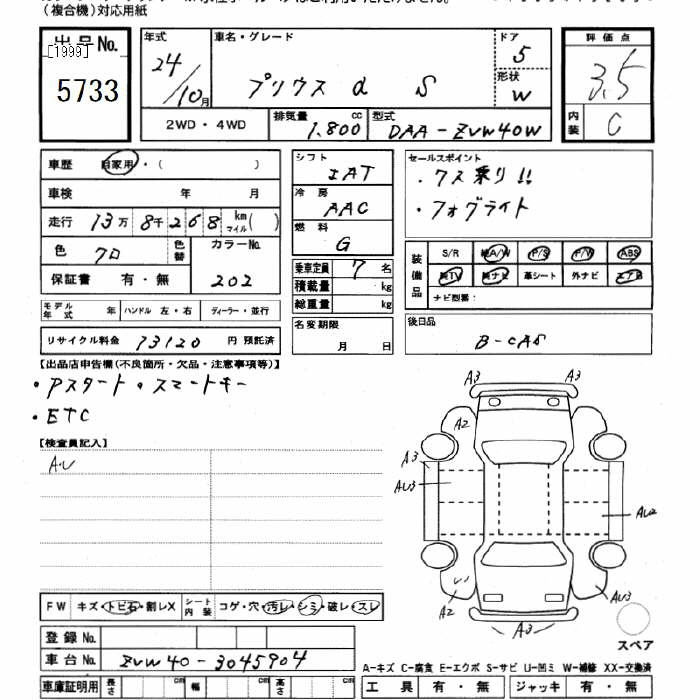 (複合機)対応用紙
出品No.
[1999]
5733
年式 24/10月
車名・グレード プリウス α S
ドア 5
形状 W
2WD・4WD
排気量 1,800 cc
型式 DAA-ZVW40W
評価点 3.5
内装 C
車歴 自家用・( )
車検 年 月
走行 13万8千268 km マイル( )
色 クロ 色替 カラーNo. 202
保証書 有・無
モデル年式 年 ハンドル 左・右 ディーラー・並行
リサイクル料金 13120 円 預託済
シフト IAT
冷房 AAC
燃料 G
乗車定員 7 名
積載量 kg
総重量 kg
名変期限 月 日
セールスポイント
・7人乗り!!
・フォグライト
装備品 S/R 純A/W P/S P/W ABS
純TV 純ナビ 革シート 外ナビ エアB
ナビ型番:
後日品 B-CAS
【出品店申告欄(不良箇所・欠品・注意事項等)】
・Pスタート・スマートキー
・ETC
【検査員記入】
A・U
A3 A3
A2
A3
AU3
AU2
A2 AU3
A3
スペア
FW キズ・トビ石・割レX シート内装 コゲ・穴・汚レ・シミ・破レ・スレ
登録No.
車台No. ZVW40-3045904
A-キズ C-腐食 E-エクボ S-サビ U-凹ミ W-補修 XX-交換済
車庫証明用 長さ cm 幅 cm 高さ cm
工具 有・無 ジャッキ 有・無